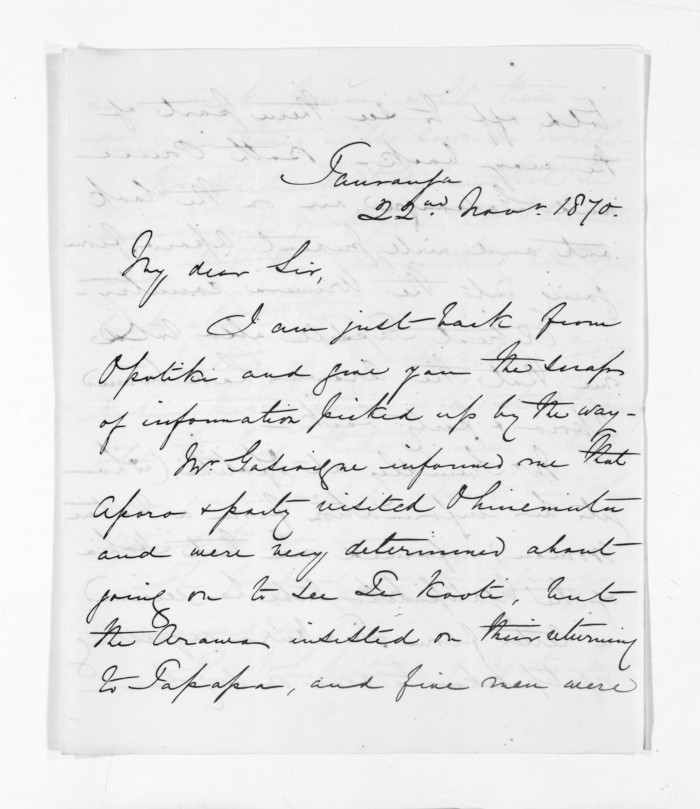 Tauranga
22nd Novr. 1870.
My dear Sir,
I am just back from
Opotiki and give you the scraps
of information picked up by the way—
Mr. Gascoigne informed me that
Aporo & party visited Ohinemutu
and were very determined about
going on to see Te Kooti, but
the Arawas insisted on their returning
to Tapapa, and five men were